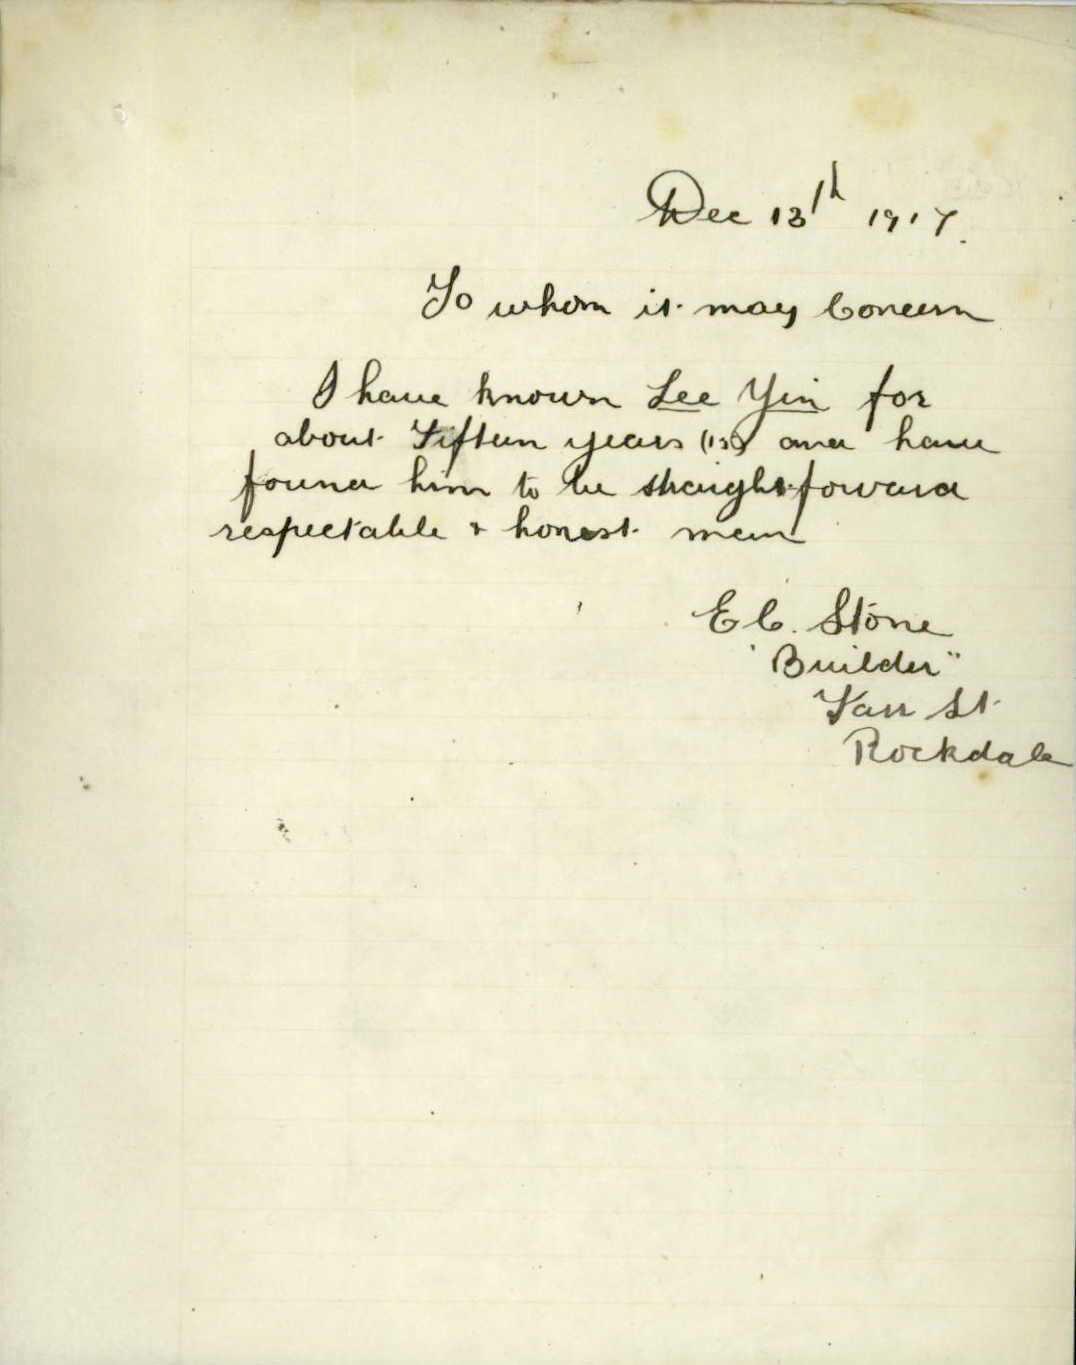 Dec 13th 1917.
To whom it may Concern
I have known Lee Yin for
about Fifteen years (15) and have
found him to be straightforward
respectable & honest man
E C. Stone
"Builder"
Farr St
Rockdale